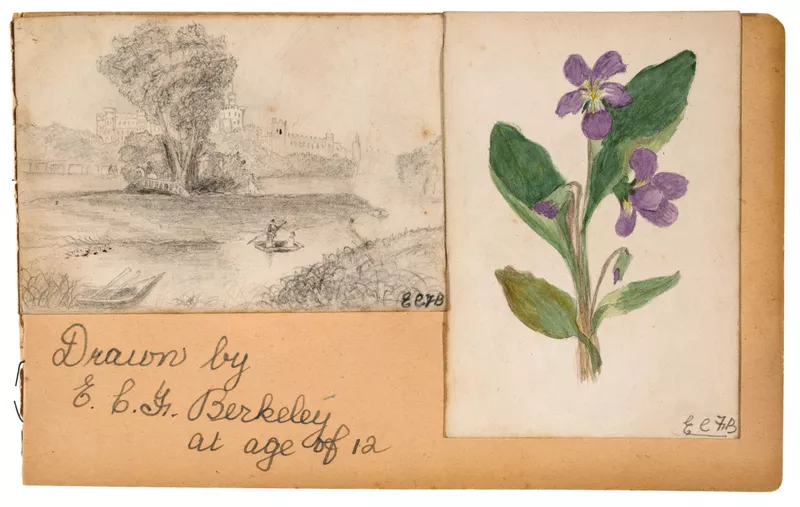 E C F B
E C F B
Drawn by
E. C. F. Berkeley
at age of 12